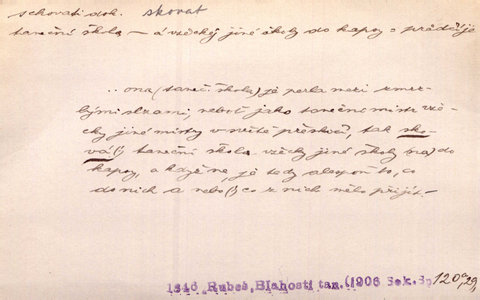 schovati dok. skovat
taneční škola — a všecky jiné školy do kapsy = předčí je
.. ona (taneč. škola) je perla mezi zmrz-
lými slzami, neboť jako taneční mistr vše-
cky jiné mistry v světě přeskočí, tak sko-
vá(!) taneční škola všecky jiné školy (na) do
kapsy, a když ne, je tedy alespoň to, co
do nich a nebo (!) co z nich mělo přijít.—
1840 Rubeš, Blahosti tan. (1906 Sek. Sp 120a, 29)